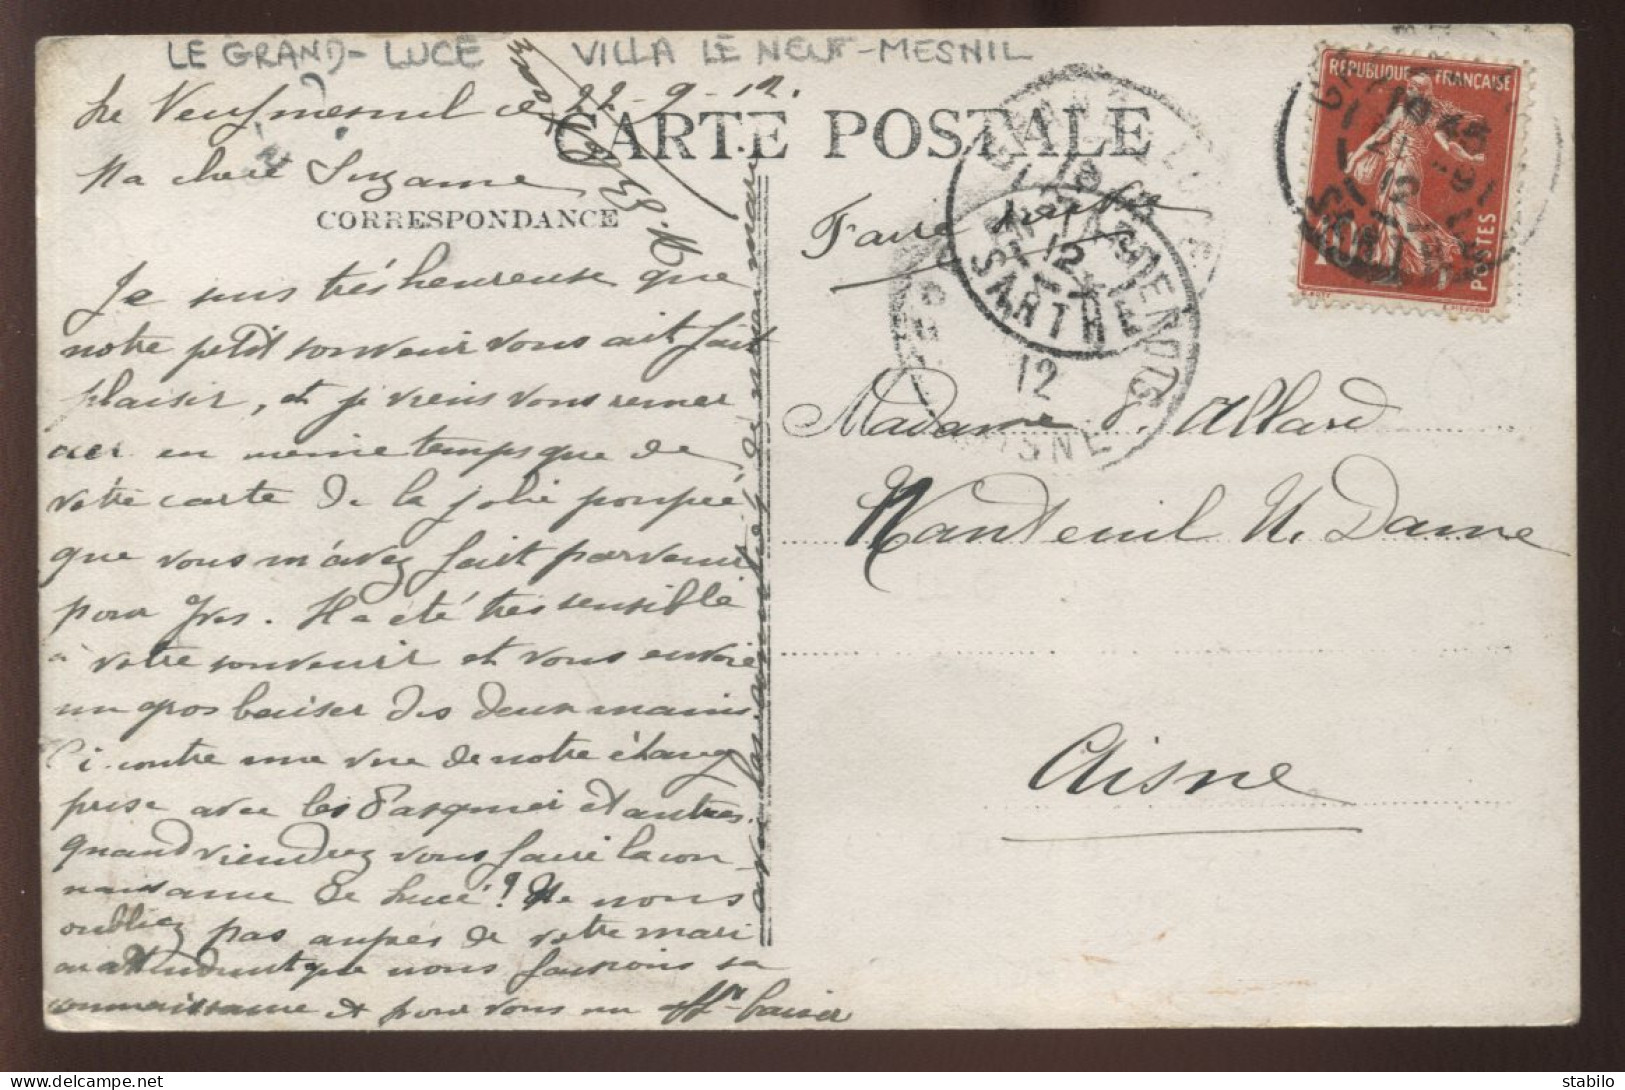 LE GRAND-LUCÉ VILLA LE NEUF-MESNIL
Le Neufmesnil ce 22-9-12.
CARTE POSTALE
Ma chere Suzanne
CORRESPONDANCE
Je suis très heureuse que
notre petit souvenir vous ait fait
plaisir, et je viens vous remer
cier en même temps que de
votre carte de la jolie poupée
que vous m'avez fait parvenir
pour Yves. Il a été très sensible
à votre souvenir et vous envoie
un gros baiser des deux mains
Ci-contre une vue de notre étang
prise avec les Pasquier et autres.
Quand viendrez vous faire la con
naissance de Lucé? Ne nous
oubliez pas auprès de votre mari
en attendant que nous fassions sa
connaissance et pour vous un aff baiser
de mon mari
Faire suivre
Madame P. Allard
Nanteuil N. Dame
Aisne
REPUBLIQUE FRANÇAISE
10
POSTES
SARTHE
12
SARTHE
12
AISNE
stabilo